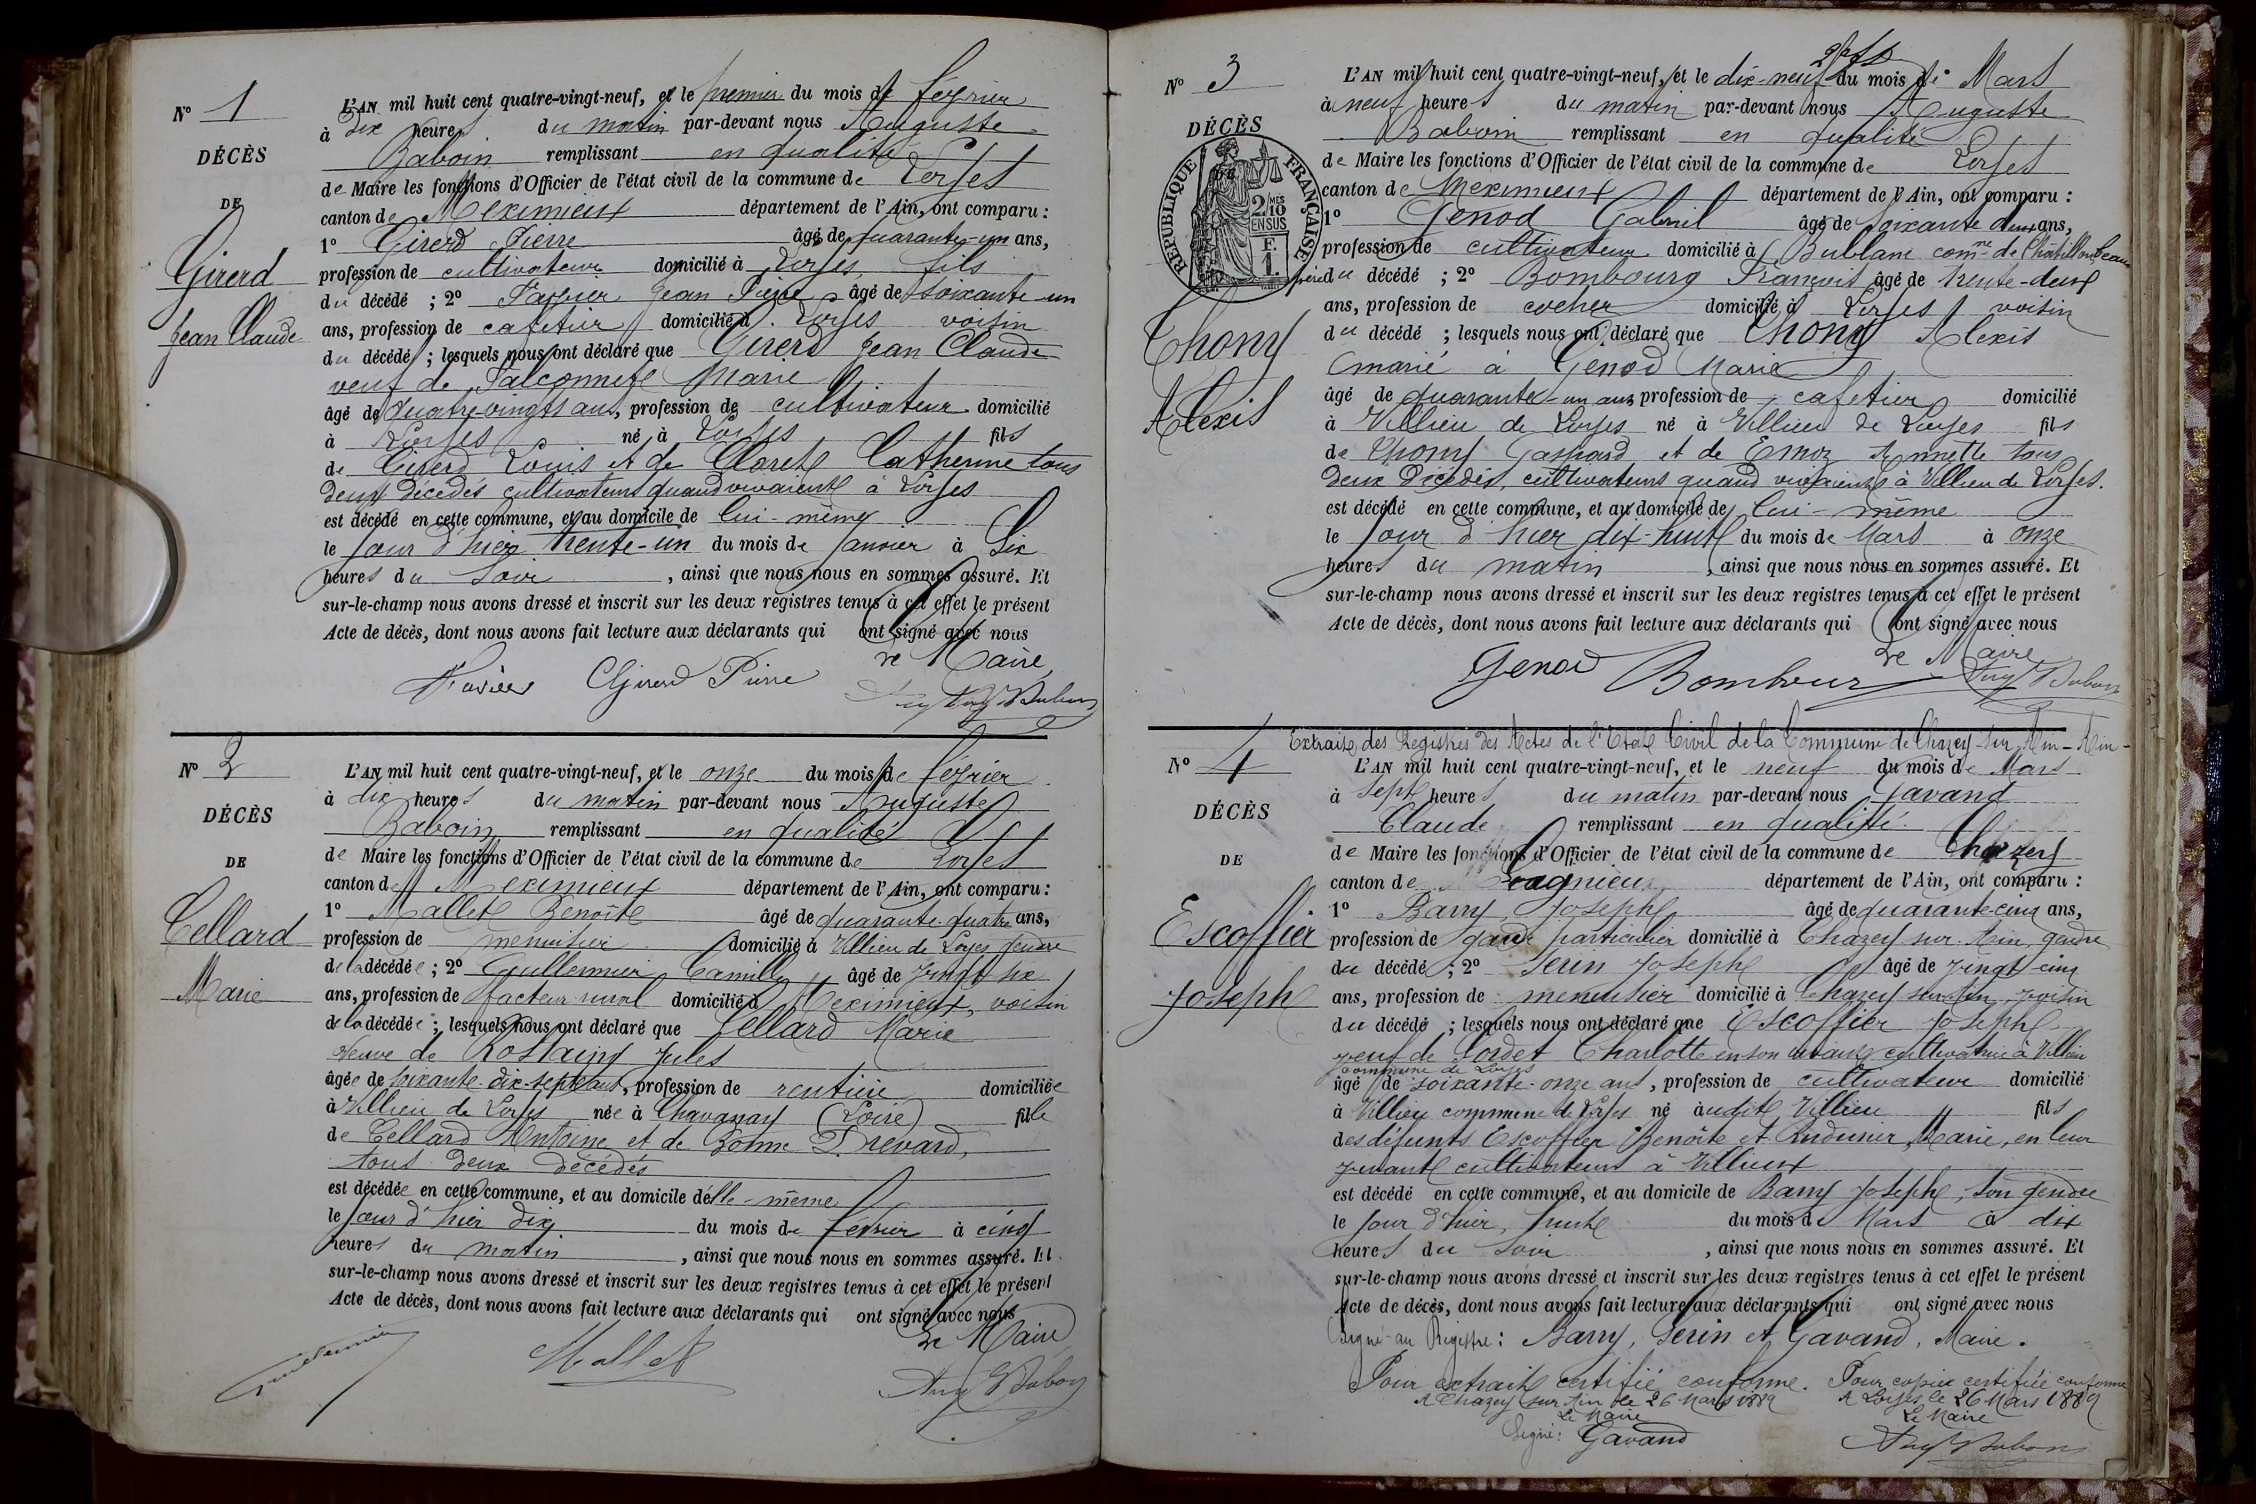 N° 1
DÉCÈS
DE
Girerd
Jean Claude
L'AN mil huit cent quatre-vingt-neuf, et le premier du mois de février
à dix heures du matin par-devant nous Auguste
Baboin remplissant en qualité
de Maire les fonctions d'Officier de l'état civil de la commune de Loyes
canton de Meximieux département de l'Ain, ont comparu :
1° Girerd Pierre âgé de quarante-un ans,
profession de cultivateur domicilié à Loyes, fils
du décédé ; 2° Favier Jean Pierre âgé de soixante-un
ans, profession de cafetier domicilié à Loyes voisin
du décédé ; lesquels nous ont déclaré que Girerd Jean Claude
veuf de Falconnet Marie
âgé de quatre-vingts ans, profession de cultivateur domicilié
à Loyes né à Loyes fils
de Girerd Louis et de Claret Catherine tous
deux décédés cultivateurs quand vivaient à Loyes
est décédé en cette commune, et au domicile de lui-même
le jour d'hier trente-un du mois de janvier à six
heures du soir, ainsi que nous nous en sommes assuré. Et
sur-le-champ nous avons dressé et inscrit sur les deux registres tenus à cet effet le présent
Acte de décès, dont nous avons fait lecture aux déclarants qui ont signé avec nous
Le Maire
Favier Girerd Pierre Aug Baboin
N° 2
DÉCÈS
DE
Cellard
Marie
L'AN mil huit cent quatre-vingt-neuf, et le onze du mois de février
à dix heures du matin par-devant nous Auguste
Baboin remplissant en qualité
de Maire les fonctions d'Officier de l'état civil de la commune de Loyes
canton de Meximieux département de l'Ain, ont comparu :
1° Mallet Benoîte âgé de quarante-quatre ans,
profession de menuisier domicilié à Villieu de Loyes gendre
de la décédée ; 2° Guillermier Camille âgé de vingt six
ans, profession de facteur rural domicilié à Meximieux, voisin
de la décédée ; lesquels nous ont déclaré que Cellard Marie
veuve de Rostaing Jules
âgée de soixante-dix-sept ans, profession de rentière domiciliée
à Villieu de Loyes née à Chavanay (Loire) fille
de Cellard Antoine et de Bonne Drevard,
tous deux décédés
est décédée en cette commune, et au domicile d'elle-même
le jour d'hier dix du mois de février à cinq
heures du matin, ainsi que nous nous en sommes assuré. Et
sur-le-champ nous avons dressé et inscrit sur les deux registres tenus à cet effet le présent
Acte de décès, dont nous avons fait lecture aux déclarants qui ont signé avec nous
Le Maire
Mallet Aug Baboin
N° 3
DÉCÈS
RÉPUBLIQUE FRANÇAISE
2 MES 10 EN SUS
F. 1.
Thony
Alexis
L'AN mil huit cent quatre-vingt-neuf, et le dix-neuf du mois de Mars
à neuf heures du matin par-devant nous Auguste
Baboin remplissant en qualité
de Maire les fonctions d'Officier de l'état civil de la commune de Loyes
canton de Meximieux département de l'Ain, ont comparu :
1° Genod Gabriel âgé de soixante deux ans,
profession de cultivateur domicilié à Bublane comne de Châtillon
du décédé ; 2° Bombourg François âgé de trente-deux
ans, profession de cocher domicilié à Loyes voisin
du décédé ; lesquels nous ont déclaré que Thony Alexis
marié à Genod Marie
âgé de quarante-un ans profession de cafetier domicilié
à Villieu de Loyes né à Villieu de Loyes fils
de Thony Gaspard et de Emoz Annette tous
deux décédés, cultivateurs quand vivaient à Villieu de Loyes.
est décédé en cette commune, et au domicile de lui-même
le jour d'hier dix-huit du mois de Mars à onze
heures du matin, ainsi que nous nous en sommes assuré. Et
sur-le-champ nous avons dressé et inscrit sur les deux registres tenus à cet effet le présent
Acte de décès, dont nous avons fait lecture aux déclarants qui ont signé avec nous
Le Maire
Genod Bombour Aug Baboin
Extrait des Registres des Actes de l'Etat Civil de la Commune de Chazey-sur-Ain - Ain -
N° 4
DÉCÈS
DE
Escoffier
Joseph
L'AN mil huit cent quatre-vingt-neuf, et le neuf du mois de Mars
à sept heures du matin par-devant nous Gavand
Claude remplissant en qualité
de Maire les fonctions d'Officier de l'état civil de la commune de Chazey
canton de Lagnieux département de l'Ain, ont comparu :
1° Barry Joseph âgé de quarante-cinq ans,
profession de garde particulier domicilié à Chazey sur Ain, gendre
du décédé ; 2° Serin Joseph âgé de vingt-cinq
ans, profession de menuisier domicilié à Chazey sur Ain, voisin
du décédé ; lesquels nous ont déclaré que Escoffier Joseph
veuf de Cordet Charlotte en son vivant cultivatrice à Villieu
commune de Loyes
âgé de soixante-onze ans, profession de cultivateur domicilié
à Villieu commune de Loyes né audit Villieu fils
des défunts Escoffier Benoîte et Andunier Marie, en leur
vivant cultivateurs à Villieux
est décédé en cette commune, et au domicile de Barry Joseph, son gendre
le jour d'hier, huit du mois de Mars à dix
heures du soir, ainsi que nous nous en sommes assuré. Et
sur-le-champ nous avons dressé et inscrit sur les deux registres tenus à cet effet le présent
Acte de décès, dont nous avons fait lecture aux déclarants qui ont signé avec nous
Signé au Registre : Barry, Serin et Gavand, Maire.
Pour extrait certifié conforme. Pour copie certifiée conforme
A Chazey sur Ain le 26 Mars 1889 A Loyes le 26 Mars 1889
Le Maire Le Maire
Signé : Gavand Aug Baboin